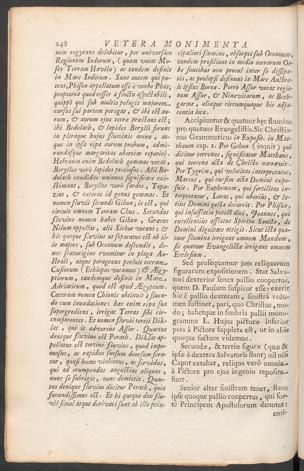 248 VETERA MONIMENTA
nem regyrans delabitur, per universam
Regionem Indorum, (quam vocat Mo-
ses Terram Havila) ac tandem desinit
in Mare Indicum. Sunt autem qui pu-
tent, Phison appellatum esse à verbo Phas,
propterea quod esset à situ
quippè qui sub multis pelagus marinum
cursus sui partem peragat, & ibi est au-
rum, & aurum ejus terræ præstans est;
ibi Bedolach, & lapides Berylli ferunt
in plerisque hujus fluminis arena, at-
que in ipsa ripa aurum probum, admi-
randisque margaritas obortas reperiri.
Hebræum enim Bedolach gemmas vocat
Beryllos verò lapides pretiosos. Alii Be-
dolach conditas uniones significare exi-
stimant, Beryllos verò sardos, Topa-
zios, & cæteros id genus gemmas. Et
nomen fluvii secundi Gihon; is est, qui
circuit omnem Terram Chus. Secundus
fluvius nomen habet Gihon, Græcis
Nilum appellat, alii Sichor vocant: &
hic quoque fluvius ut separatus est ab il-
lo majore, sub Oceanum descendit, do-
nec scaturigine evomitur in plaga Au-
strali, atque peragrans perluit terram
Cusæorum (Ethiopas vocamus) & Ægy-
ptiorum, tandemque desinit in Mare,
Adriaticum, quod est apud Ægyptum.
Cæterum nomen Gihonis obtinuit à fluen-
do cum inundatione: hæc enim ripas suas
supergrediens, irrigat Terras sibi cir-
cumjacentes. Et nomen fluvii tertii Dik-
lat, qui it adversus Assur. Quartus
denique fluvius est Perath. Diklat ap-
pellatus est tertius fluvius, quòd impe-
tuosus, ac rapidus sursum deorsum fera-
tur, quasi homo violentus, ac fervidus,
qui ad irrumpendas angustias aliquas,
nunc se subrigit, nunc demittit. Quar-
tus denique fluvius dicitur Perath, quia
fœcundissimus est. Et hi quoque duo flu-
vii simul atque derivati sunt ab illo prin-
cipaliori flumine, absorpti sub Oceanum,
tandem prosiliunt in medio terrarum Or-
be fontibus non procul inter se dissipa-
tis, ac prolapsi desinunt in Mare Austra-
le ipsius Boreæ. Porrò Assur vocat regio-
nem Assur, & Ninivitarum, ac Beth-
garme, aliaque circumquaque bis adja-
centia loca.
Accipiuntur & quatuor hæc flumina
pro quatuor Evangelistis. Sic Christia-
nus Grammaticus in Exposit. in Mat-
thæum cap. 1. Per Gehon (inquit) qui
dicitur terrenus, significatur Matthæus,
qui terrena acta de Christo narravit.
Per Tygrim, qui velocitas interpretatur,
Marcus, qui cursim acta Domini expo-
suit. Per Euphratem, qui fertilitas in-
terpretatur, Lucas, qui ubertim, & le-
tiùs Domini gesta decurrit. Per Phison,
qui insufflatio potest dici, Joannes, qui
excellentiùs afflatus Spiritu Sancto, de
Domini dignitate attigit. Sicut ista qua-
tuor flumina irrigant omnem Mundum,
sic quatuor Evangelistæ irrigant omnem
Ecclesiam.
Sed prosequamur jam reliquarum
figurarum expositionem. Stat Salva-
tori dexterior senex pallio coopertus,
quem D. Paulum fuisse esse; exerit
hic è pallio dexteram, sinistra volu-
men sustinet, pari, quo Christus, mo-
do; habetque in fimbria pallii mono-
gramma L. Hujus picturæ inferior
pars à Pictore suppleta est, ut in aliis
quoque factum vidimus.
Secundæ, & tertiæ figuræ (quæ &
ipsæ à dextera Salvatoris stant) nil nisi
Caput extabat, reliqua verò omnia,
à Pictore pro ejus ingenio reposita
sunt.
Senior alter sinistram tenet, stans
ipse quoque pallio coopertus, qui for-
tè Principem Apostolorum denotat:
emi-